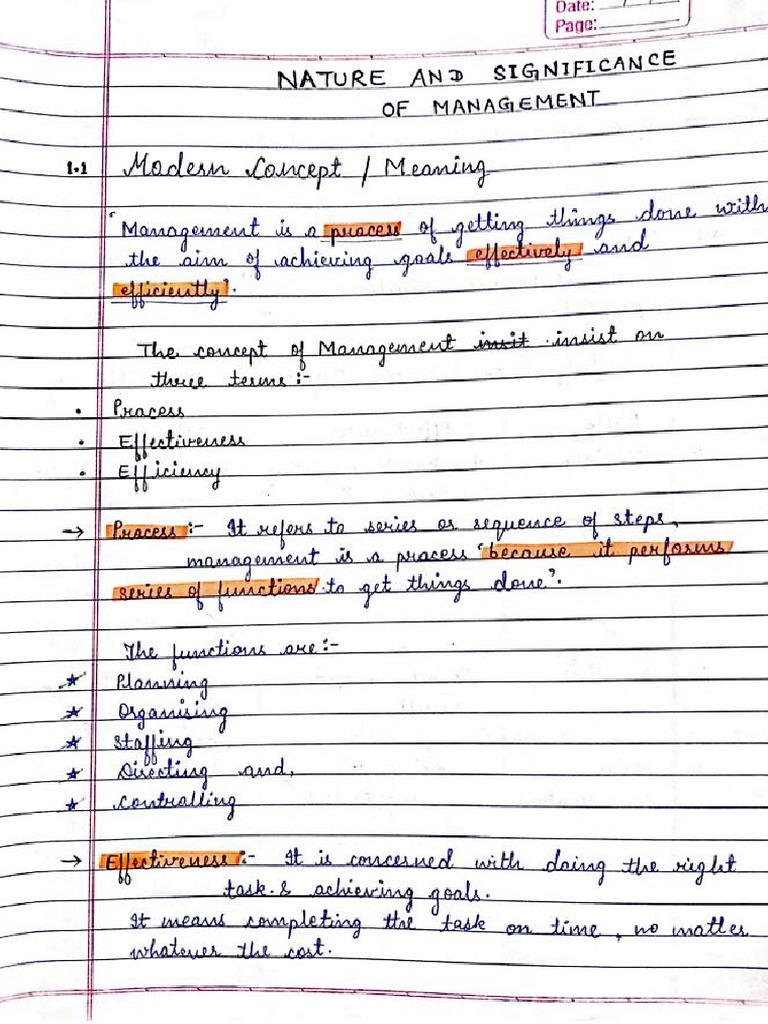 Date: __/__/__
Page:
NATURE AND SIGNIFICANCE
OF MANAGEMENT
1.1 Modern Concept / Meaning
'Management is a process of getting things done with
the aim of achieving goals effectively and
efficiently'.
The concept of Management insit insist on
three terms :-
• Process
• Effectiveness
• Efficiency
→ Process :- It refers to series or sequence of steps,
management is a process 'because it performs
series of functions to get things done'.
The functions are :-
★ Planning
★ Organising
★ Staffing
★ Directing and,
★ Controlling
→ Effectiveness :- It is concerned with doing the right
task & achieving goals.
It means completing the task on time, no matter
whatever the cost.